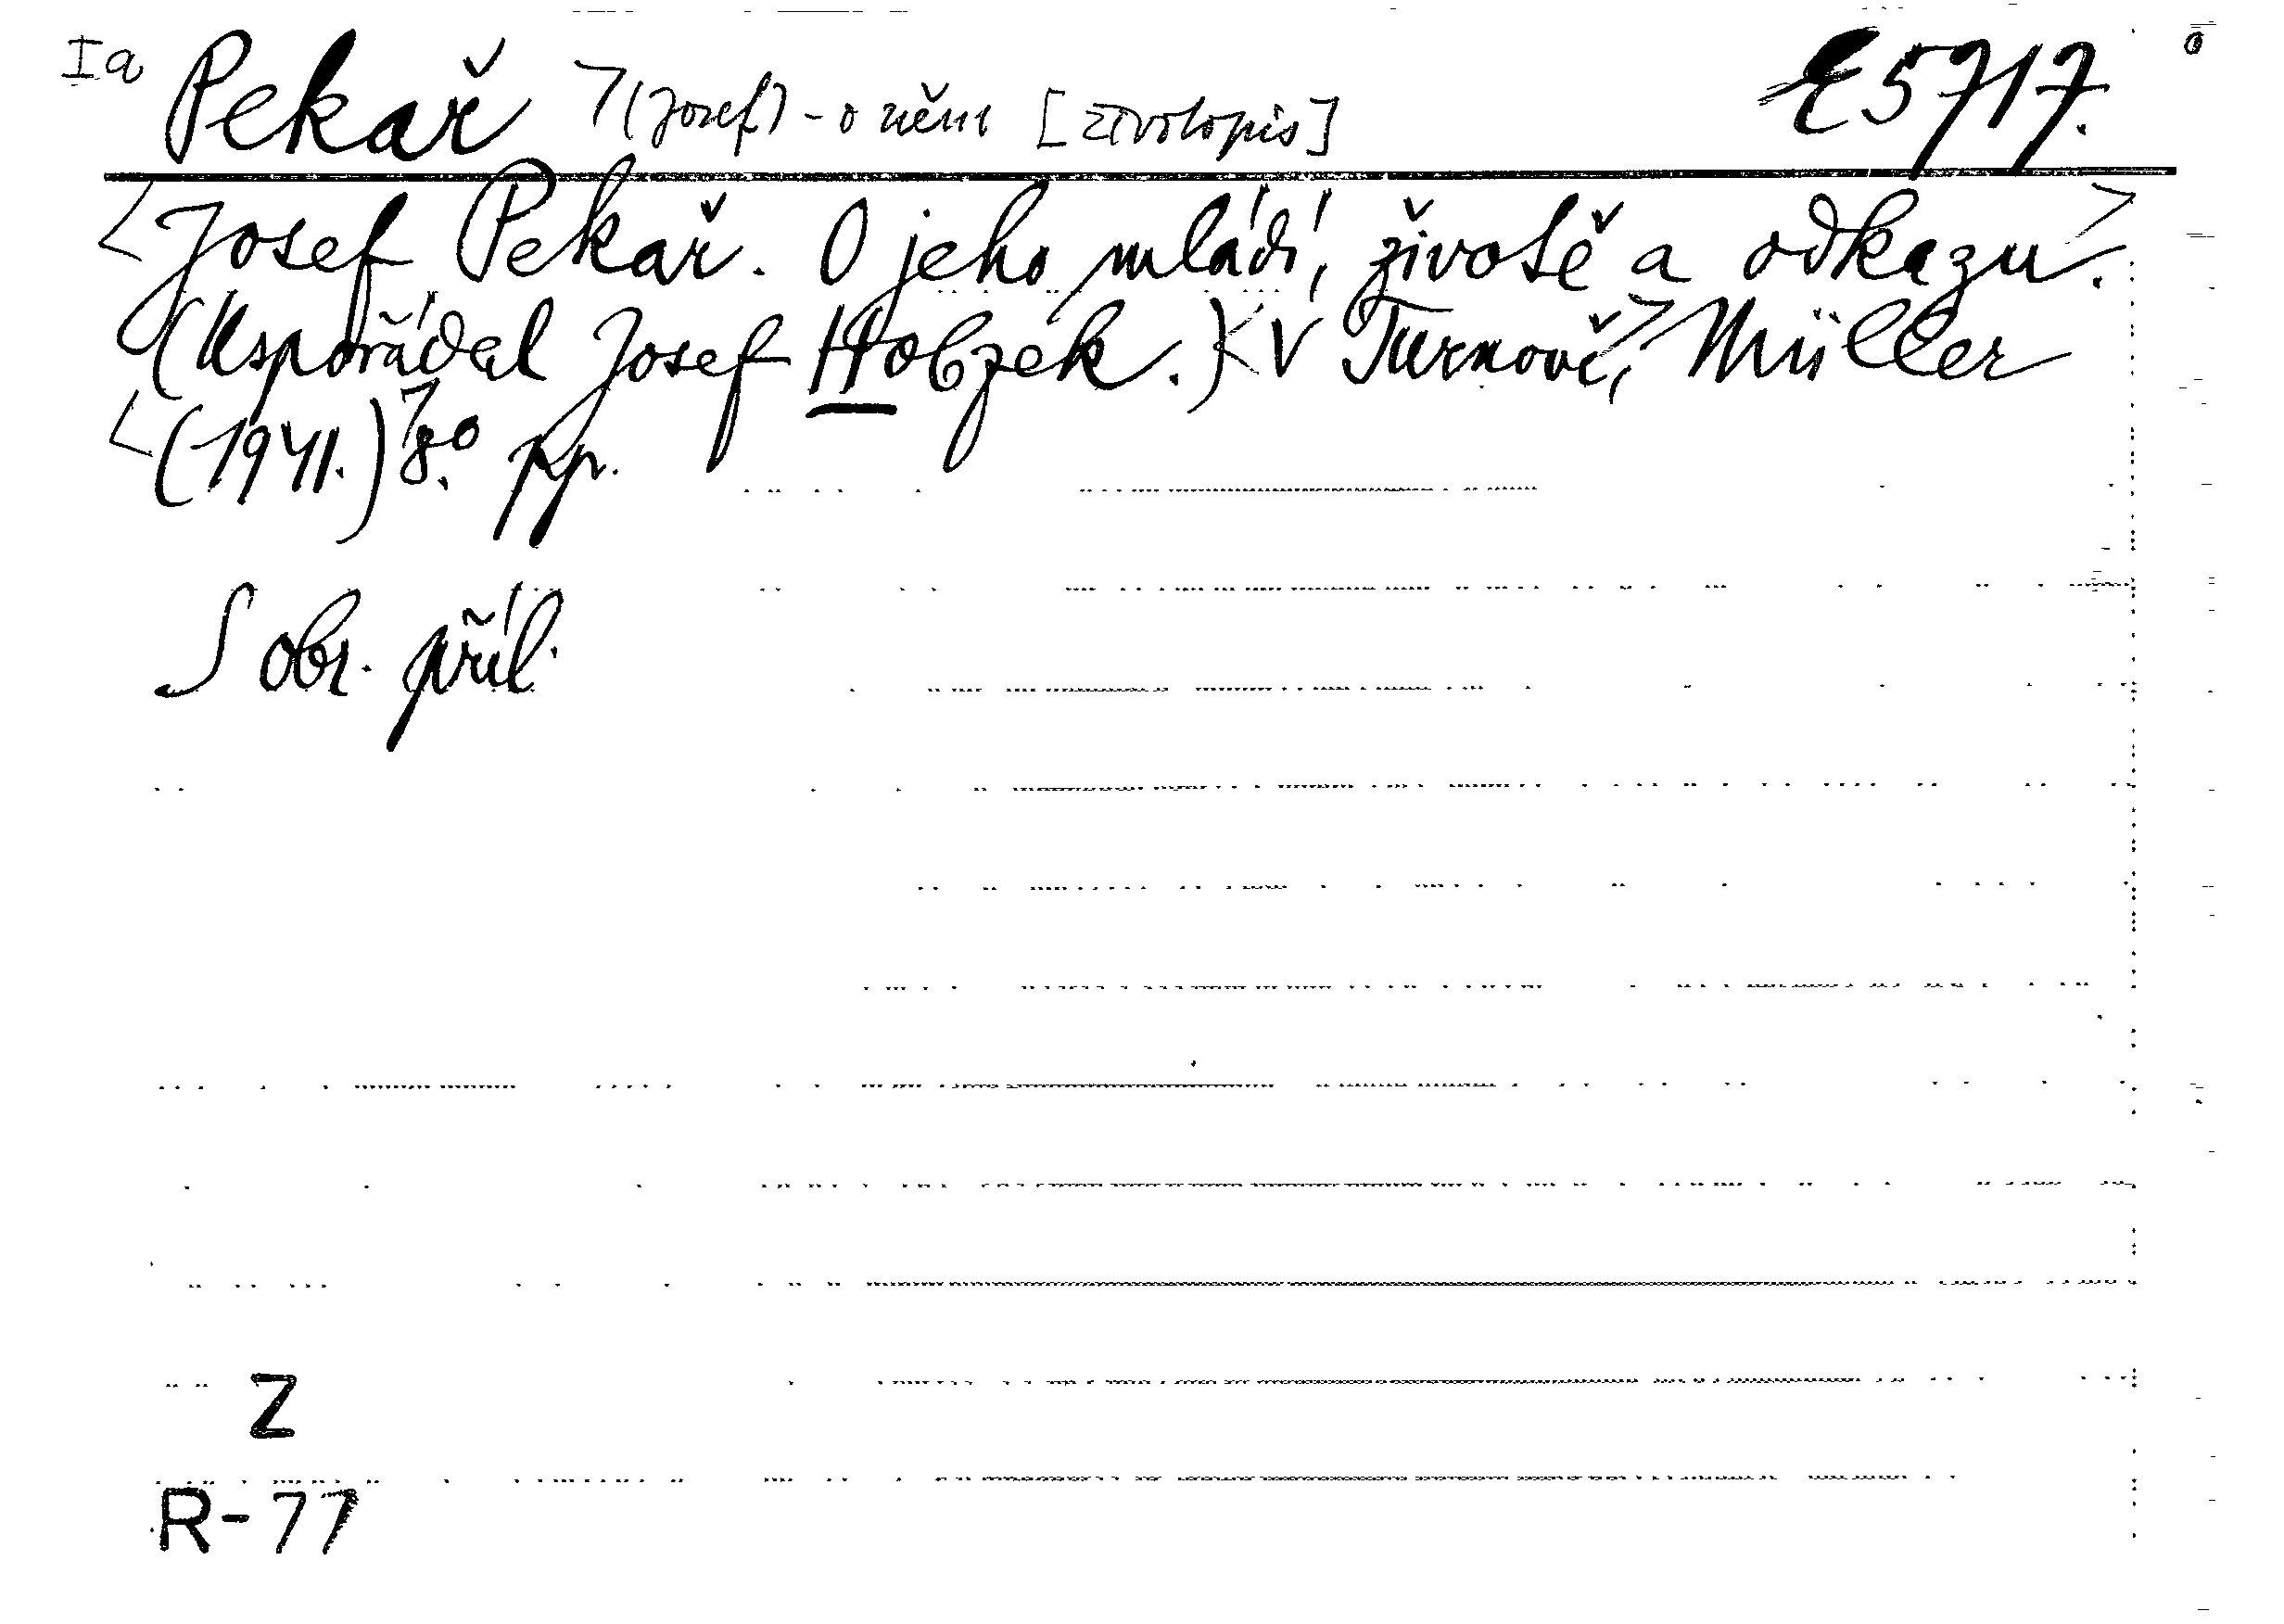 Ia Pekař ⌝(Josef) - o něm [životopis] E 5717.
<Josef Pekař. O jeho mládí, životě a odkazu.>
(Uspořádal Josef Hobzek.) <V Turnově,> Müller
<(1941.)> 8.° pp.
S obr. příl.
Z
R-77